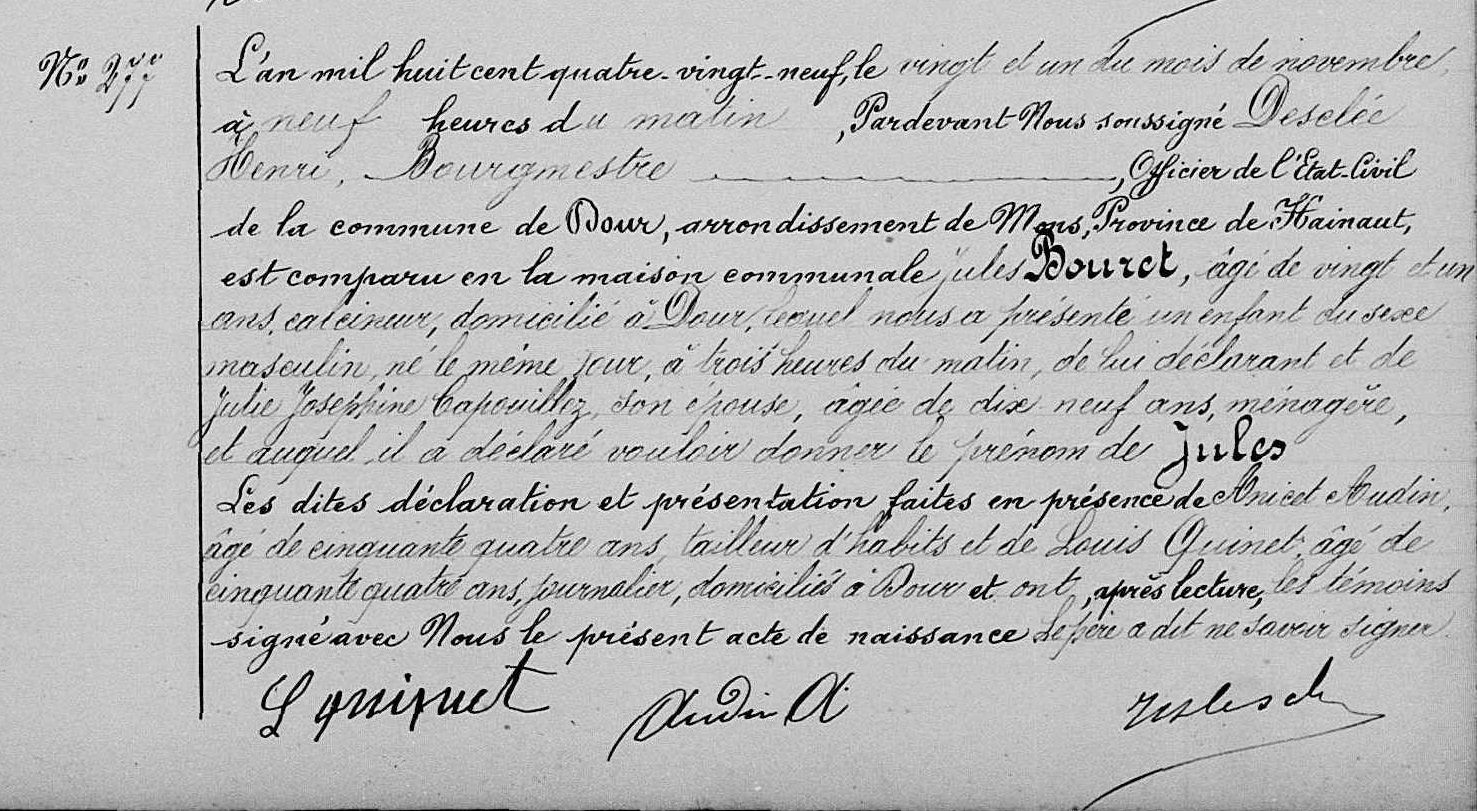 No 277
L'an mil huit cent quatre-vingt-neuf, le vingt et un du mois de novembre,
à neuf heures du matin, Pardevant Nous soussigné Desclée
Henri, Bourgmestre, Officier de l'Etat-Civil
de la commune de Dour, arrondissement de Mons, Province de Hainaut,
est comparu en la maison communale Jules Bouret, âgé de vingt et un
ans, calcineur, domicilié à Dour, lequel nous a présenté un enfant du sexe
masculin, né le même jour, à trois heures du matin, de lui déclarant et de
Julie Josephine Capouillez, son épouse, âgée de dix-neuf ans, ménagère,
et auquel il a déclaré vouloir donner le prénom de Jules
Les dites déclaration et présentation faites en présence de Anicet Audin,
âgé de cinquante quatre ans, tailleur d'habits et de Louis Quinet, âgé de
cinquante quatre ans, journalier, domiciliés à Dour et ont, après lecture, les témoins
signé avec Nous le présent acte de naissance Le père a dit ne savoir signer.
L quinet Audin A